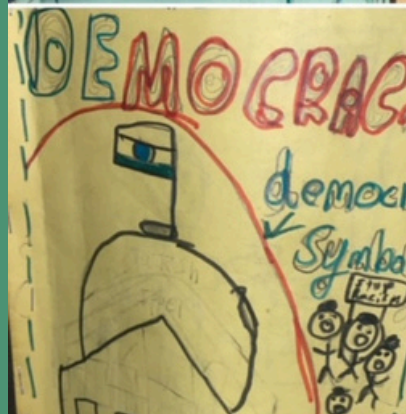 DEMOCRAC
democ
Symbo
STOP